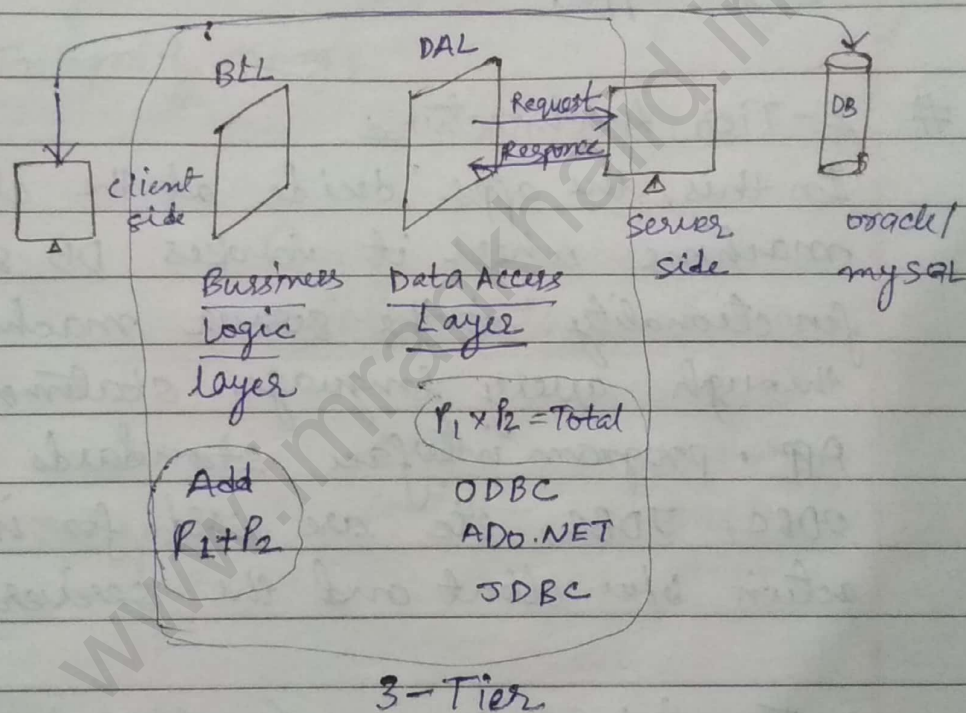 BLL
DAL
Request
Responce
DB
client
side
server
side
oracle/
mySQL
Bussiness
Logic
layer
Data Access
Layer
P1 x P2 = Total
Add
P1+P2
ODBC
ADO.NET
JDBC
3-Tier